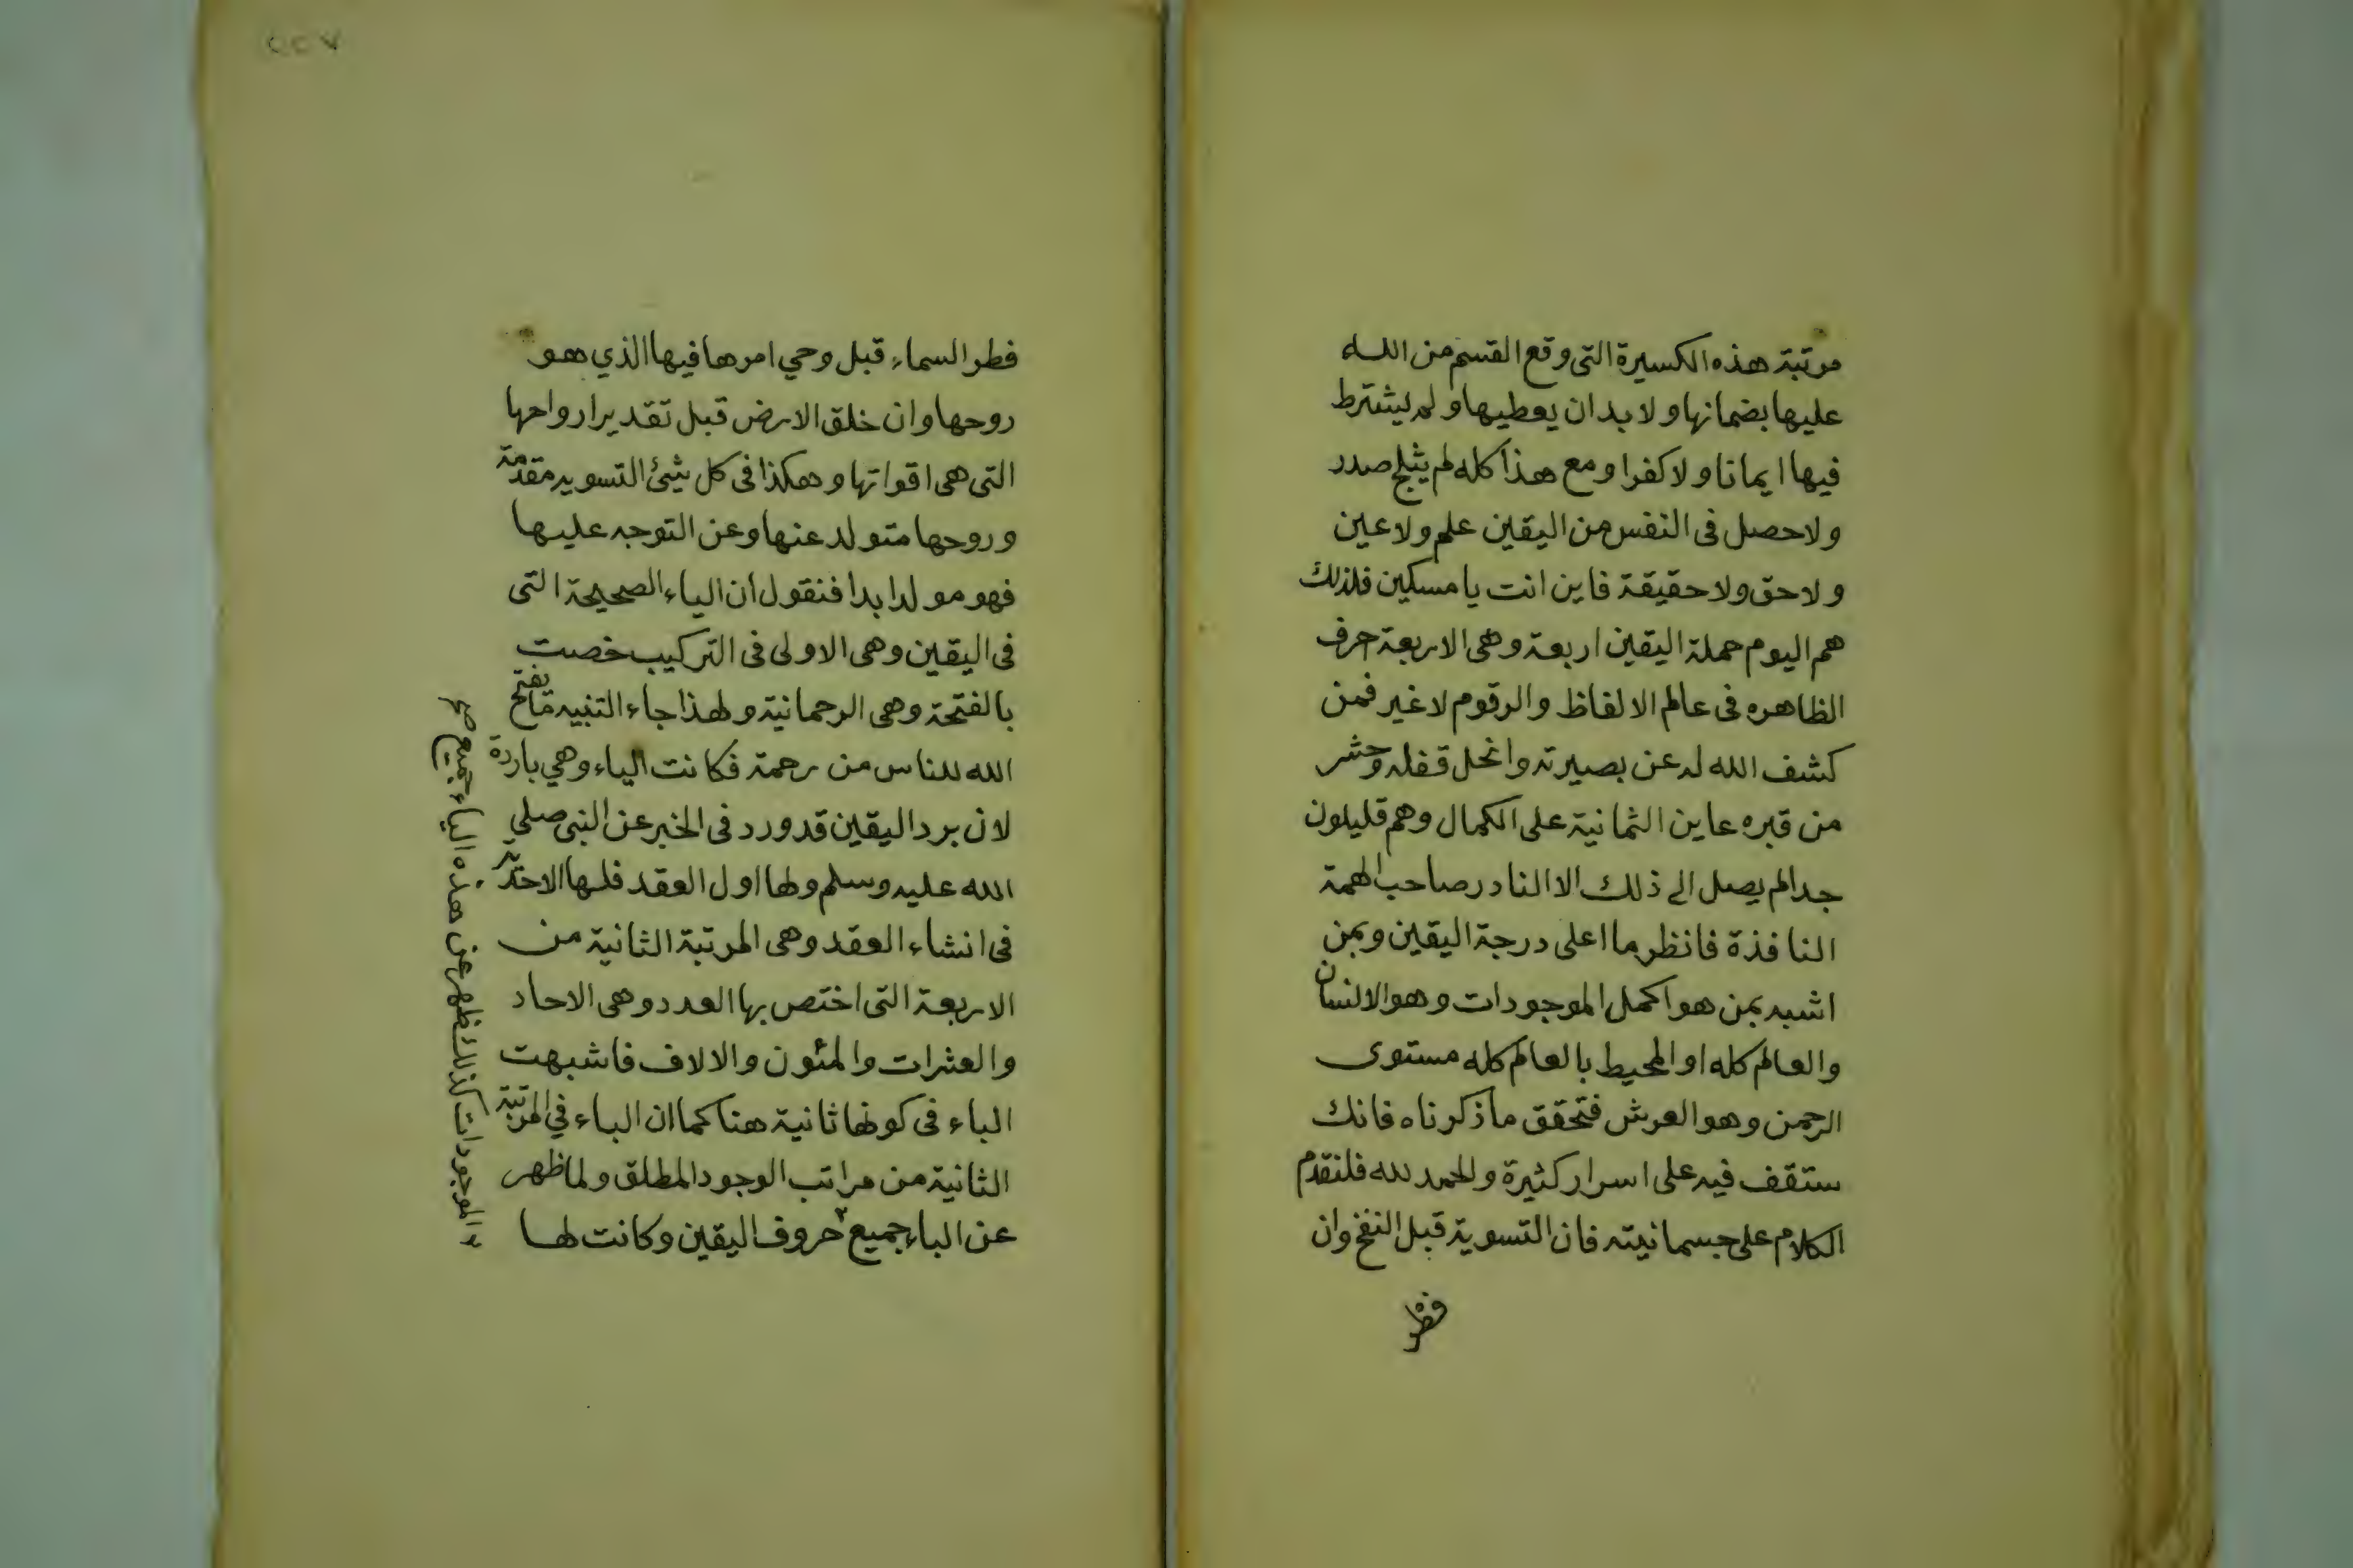 مرتبة هذه الكسيرة التى وقع القسم من الله
عليها بضمانها ولا بد ان يعطيها ولم يشترط
فيها ايمانا ولا كفرا ومع هذا كله لم يثلج صدر
ولا حصل فى النفس من اليقين علم ولا عين
ولا حق ولا حقيقة فاين انت يا مسكين فلذلك
هم اليوم حملة اليقين اربعة وهى الاربعة حرف
الظاهره فى عالم الالفاظ والرقوم لا غير فمن
كشف الله له عن بصيرته وانحل قفله وحشر
من قبره عاين الثمانية على الكمال وهم قليلون
جدا لم يصل الى ذلك الا النادر صاحب الهمة
النافذة فانظر ما اعلى درجة اليقين وبمن
اشبه بمن هو اكمل الموجودات وهو الانسان
والعالم كله او المحيط بالعالم كله مستوى
الرحمن وهو العرش فتحقق ما ذكرناه فانك
ستقف فيه على اسرار كثيرة والحمد لله فلنقدم
الكلام على جسمانيته فان التسوية قبل النفخ وان
فطر
٢٢٧
فطر السماء قبل وحي امرها فيها الذي هو
روحها وان خلق الارض قبل تقدير ارواحها
التى هى اقواتها وهكذا فى كل شئ التسويه مقدمة
وروحها متولد عنها وعن التوجه عليها
فهو مولد ابدا فنقول ان الياء الصحيحة التى
فى اليقين وهى الاولى فى التركيب خصت
بالفتحة وهى الرحمانية ولهذا جاء التنبيه ما يفتح
الله للناس من رحمة فكانت الياء وهي باردة
لان برد اليقين قد ورد فى الخبر عن النبى صلى
الله عليه وسلم ولها اول العقد فلها الاحدية
فى انشاء العقد وهى المرتبة الثانية من
الاربعة التى اختص بها العدد وهى الاحاد
والعشرات والمئون والالاف فاشبهت
الباء فى كونها ثانية هنا كما ان الباء في المرتبة
الثانية من مراتب الوجود المطلق ولما ظهر
عن الباء جميع حروف اليقين وكانت لها
الموجودات كذلك ظهر عن هذه الياء جميع صح